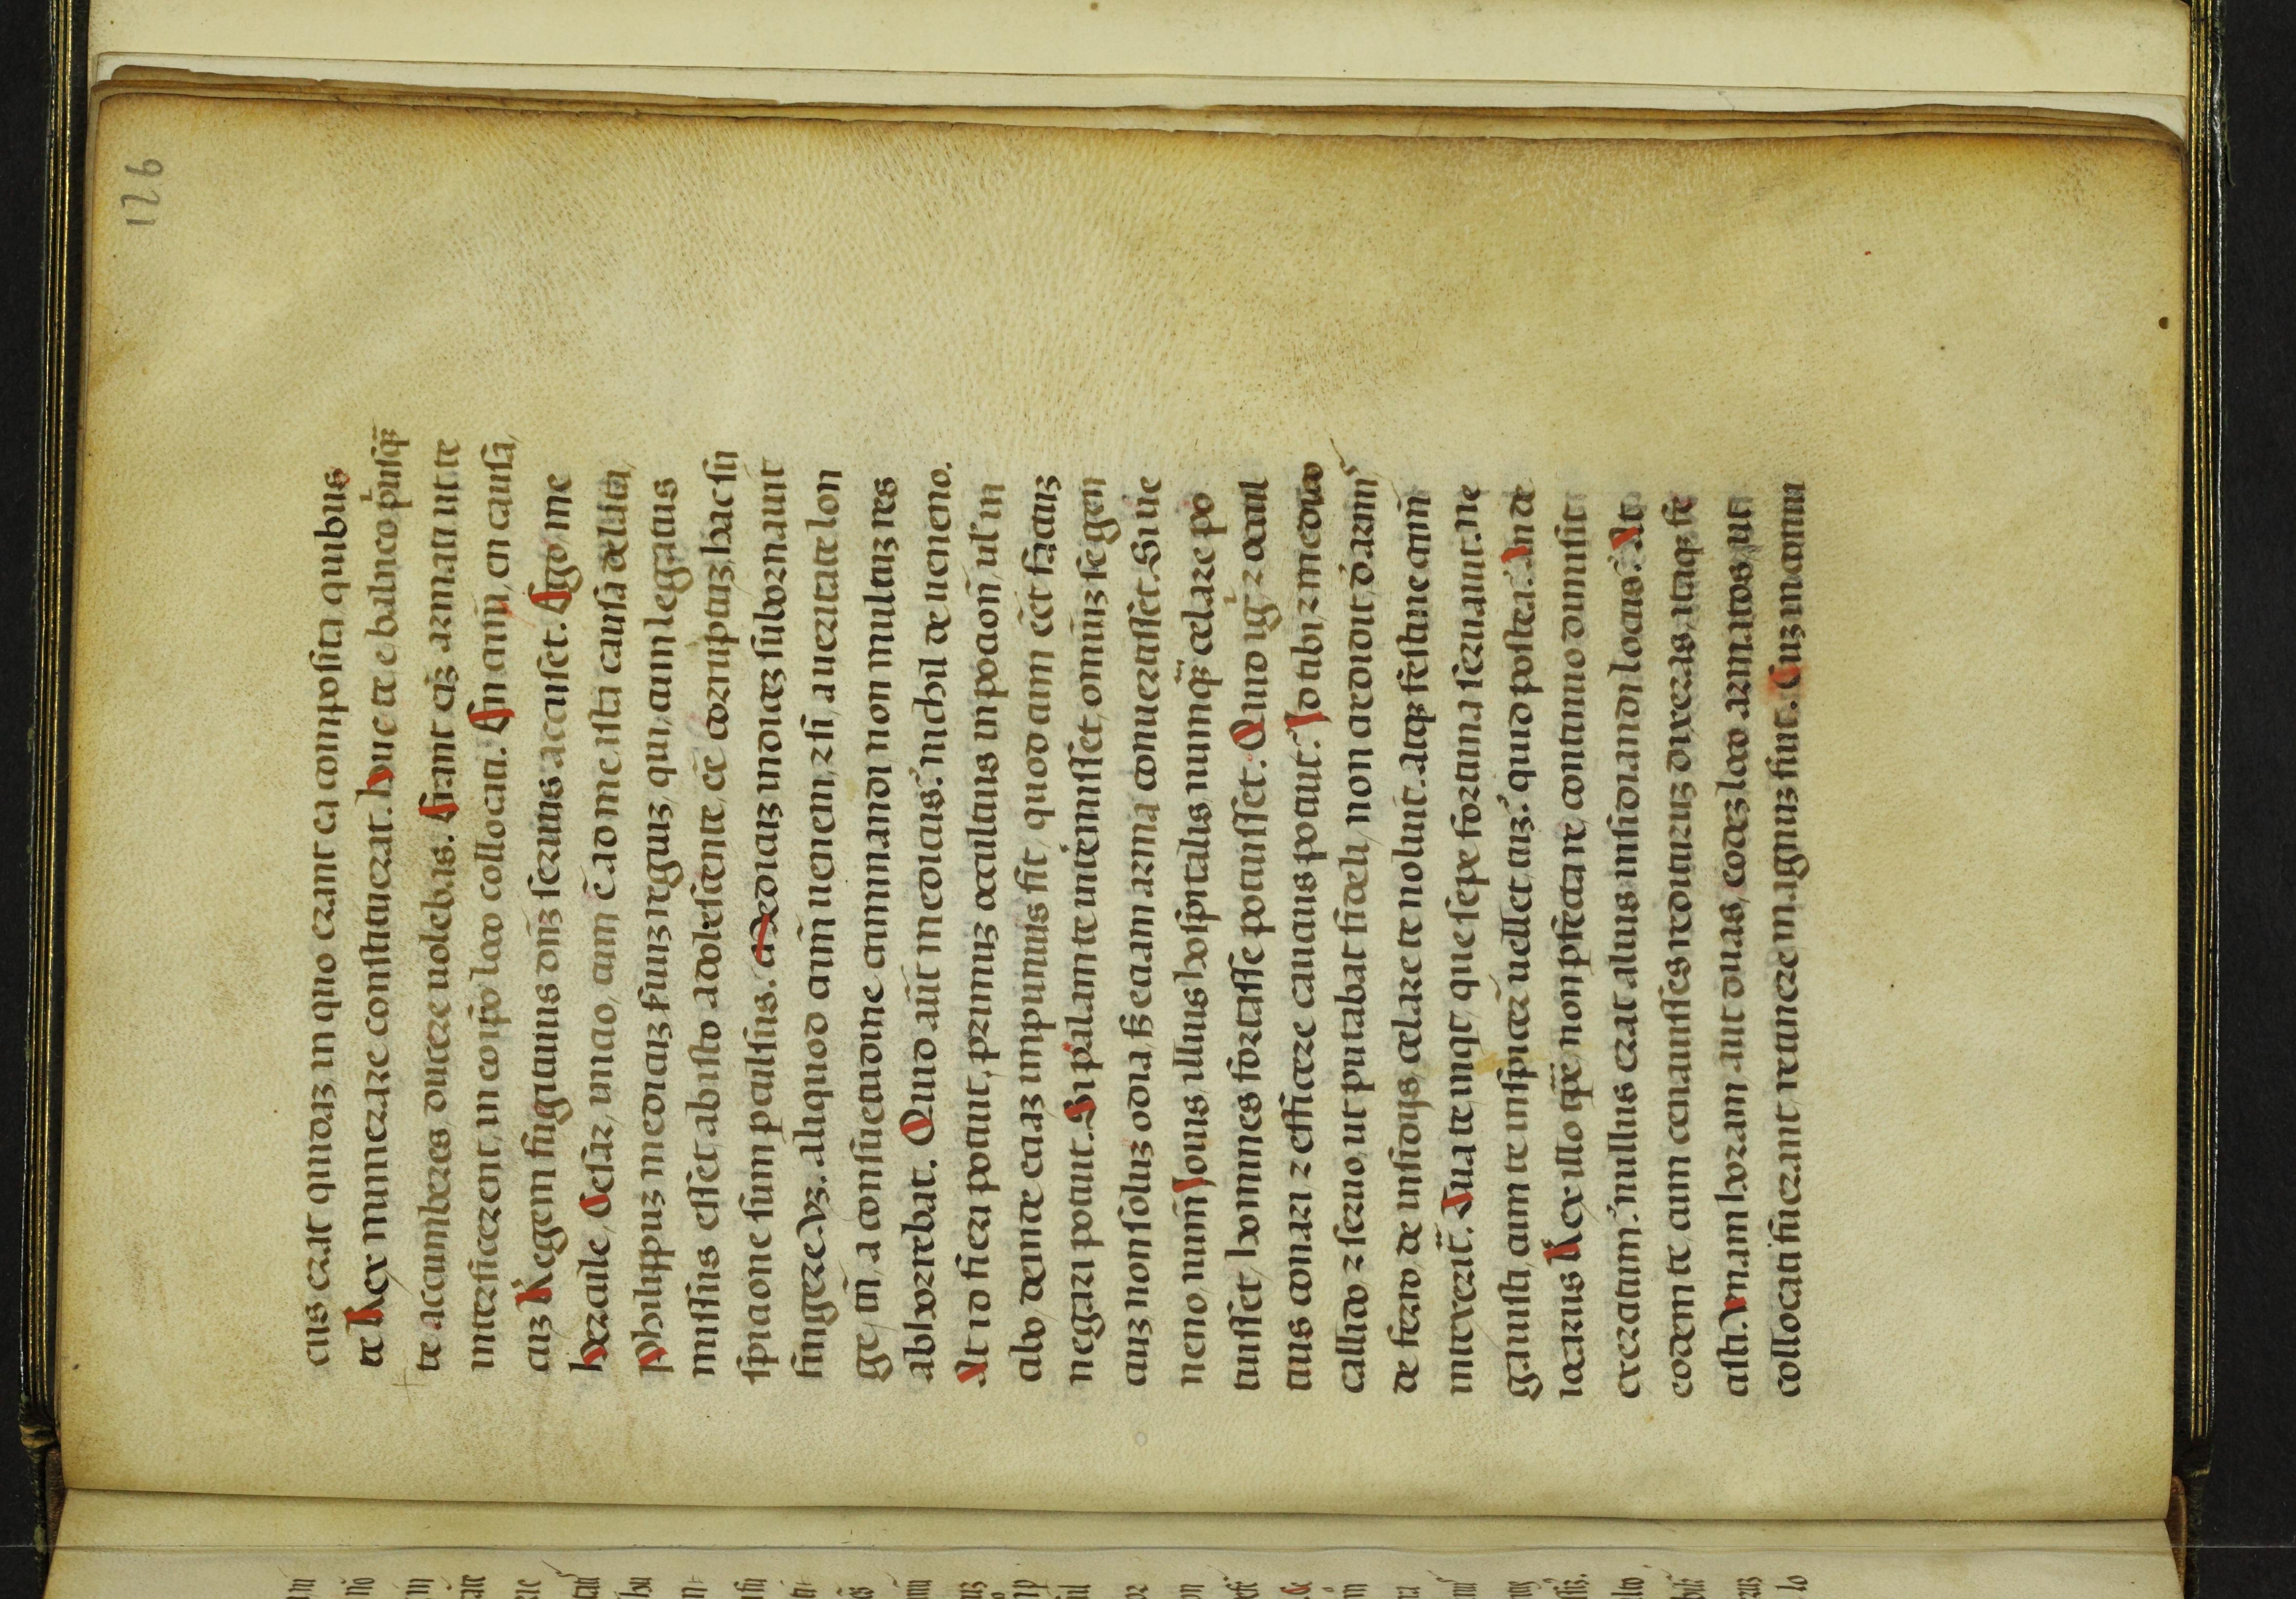 126
cus erat quidaꝫ in quo erant ea composita quibus
te Rex munerare constituerat. huc te e balneo pͥusqꝫ̄
te accumberes ducere uolebas. Erant eīꝫ armati ut te
interficerent, in eo ip̄o loco collocati. En crim̄, en causa,
cuꝫ Regem fugitiuus dn̄ꝫ seruus accuset. Ego me
hercule, Cesar, initio, cum ē ad me ista causa delata,
Philippuꝫ medicuꝫ suuꝫ reguuꝫ, qui, cum legatus
missus esset, ab isto adolescente, cē̄ corruptuꝫ, hac su
spicione sum pculsus. Medicuꝫ indicē subornauit
fingere uꝫ. aliquod crim̄ uenem, ⁊ si, a ueritate lon
ge, tn̄, a consuetudine criminandi non multuꝫ res
abhorrebat. Quid aut̄ medicus. nichil de ueneno.
At id fieri potuit, primuꝫ occultius in pocion̄, ul' in
abo deinde eciaꝫ impunius fit, quod cum ēet factuꝫ
negari potuit. Si palam te int'emisset, omniuꝫ se gen
ciuꝫ non soluꝫ odia sꝫ eciam arma conuertisset. Si ue
neno, num̄ Iouis, illius hospitalis numqꝫ̄ celare po
tuisset, homines fortasse potuisset. Quid igͥ ⁊ occul
cius conari ⁊ efficere caucius potuit. Id tibi, ⁊ medico
callido ⁊ seruo, ut putabat fideli, non credidit, d'armis
de ferro, de insidijs, celare te noluit. atqꝫ festiue crim̄
intexerit̄. Tua te inqt, que sepe fortuna seruauit. ne
gauisti, cum te inspicer̄ uellet tuꝫ. quid postea. An de
iocarus Rex illo tp̄e, non pfecta re, continuo dimisit
exercitum. nullus erat alius insidiandi locus. At
eodem te, cum cenauisses rediturus dixeras, itaqꝫ fe
cisti. Vnam horam aut duas, eodeꝫ loco armatos, uti
collocati fuerant retinere magnuꝫ fuit. Cuꝫ in conui